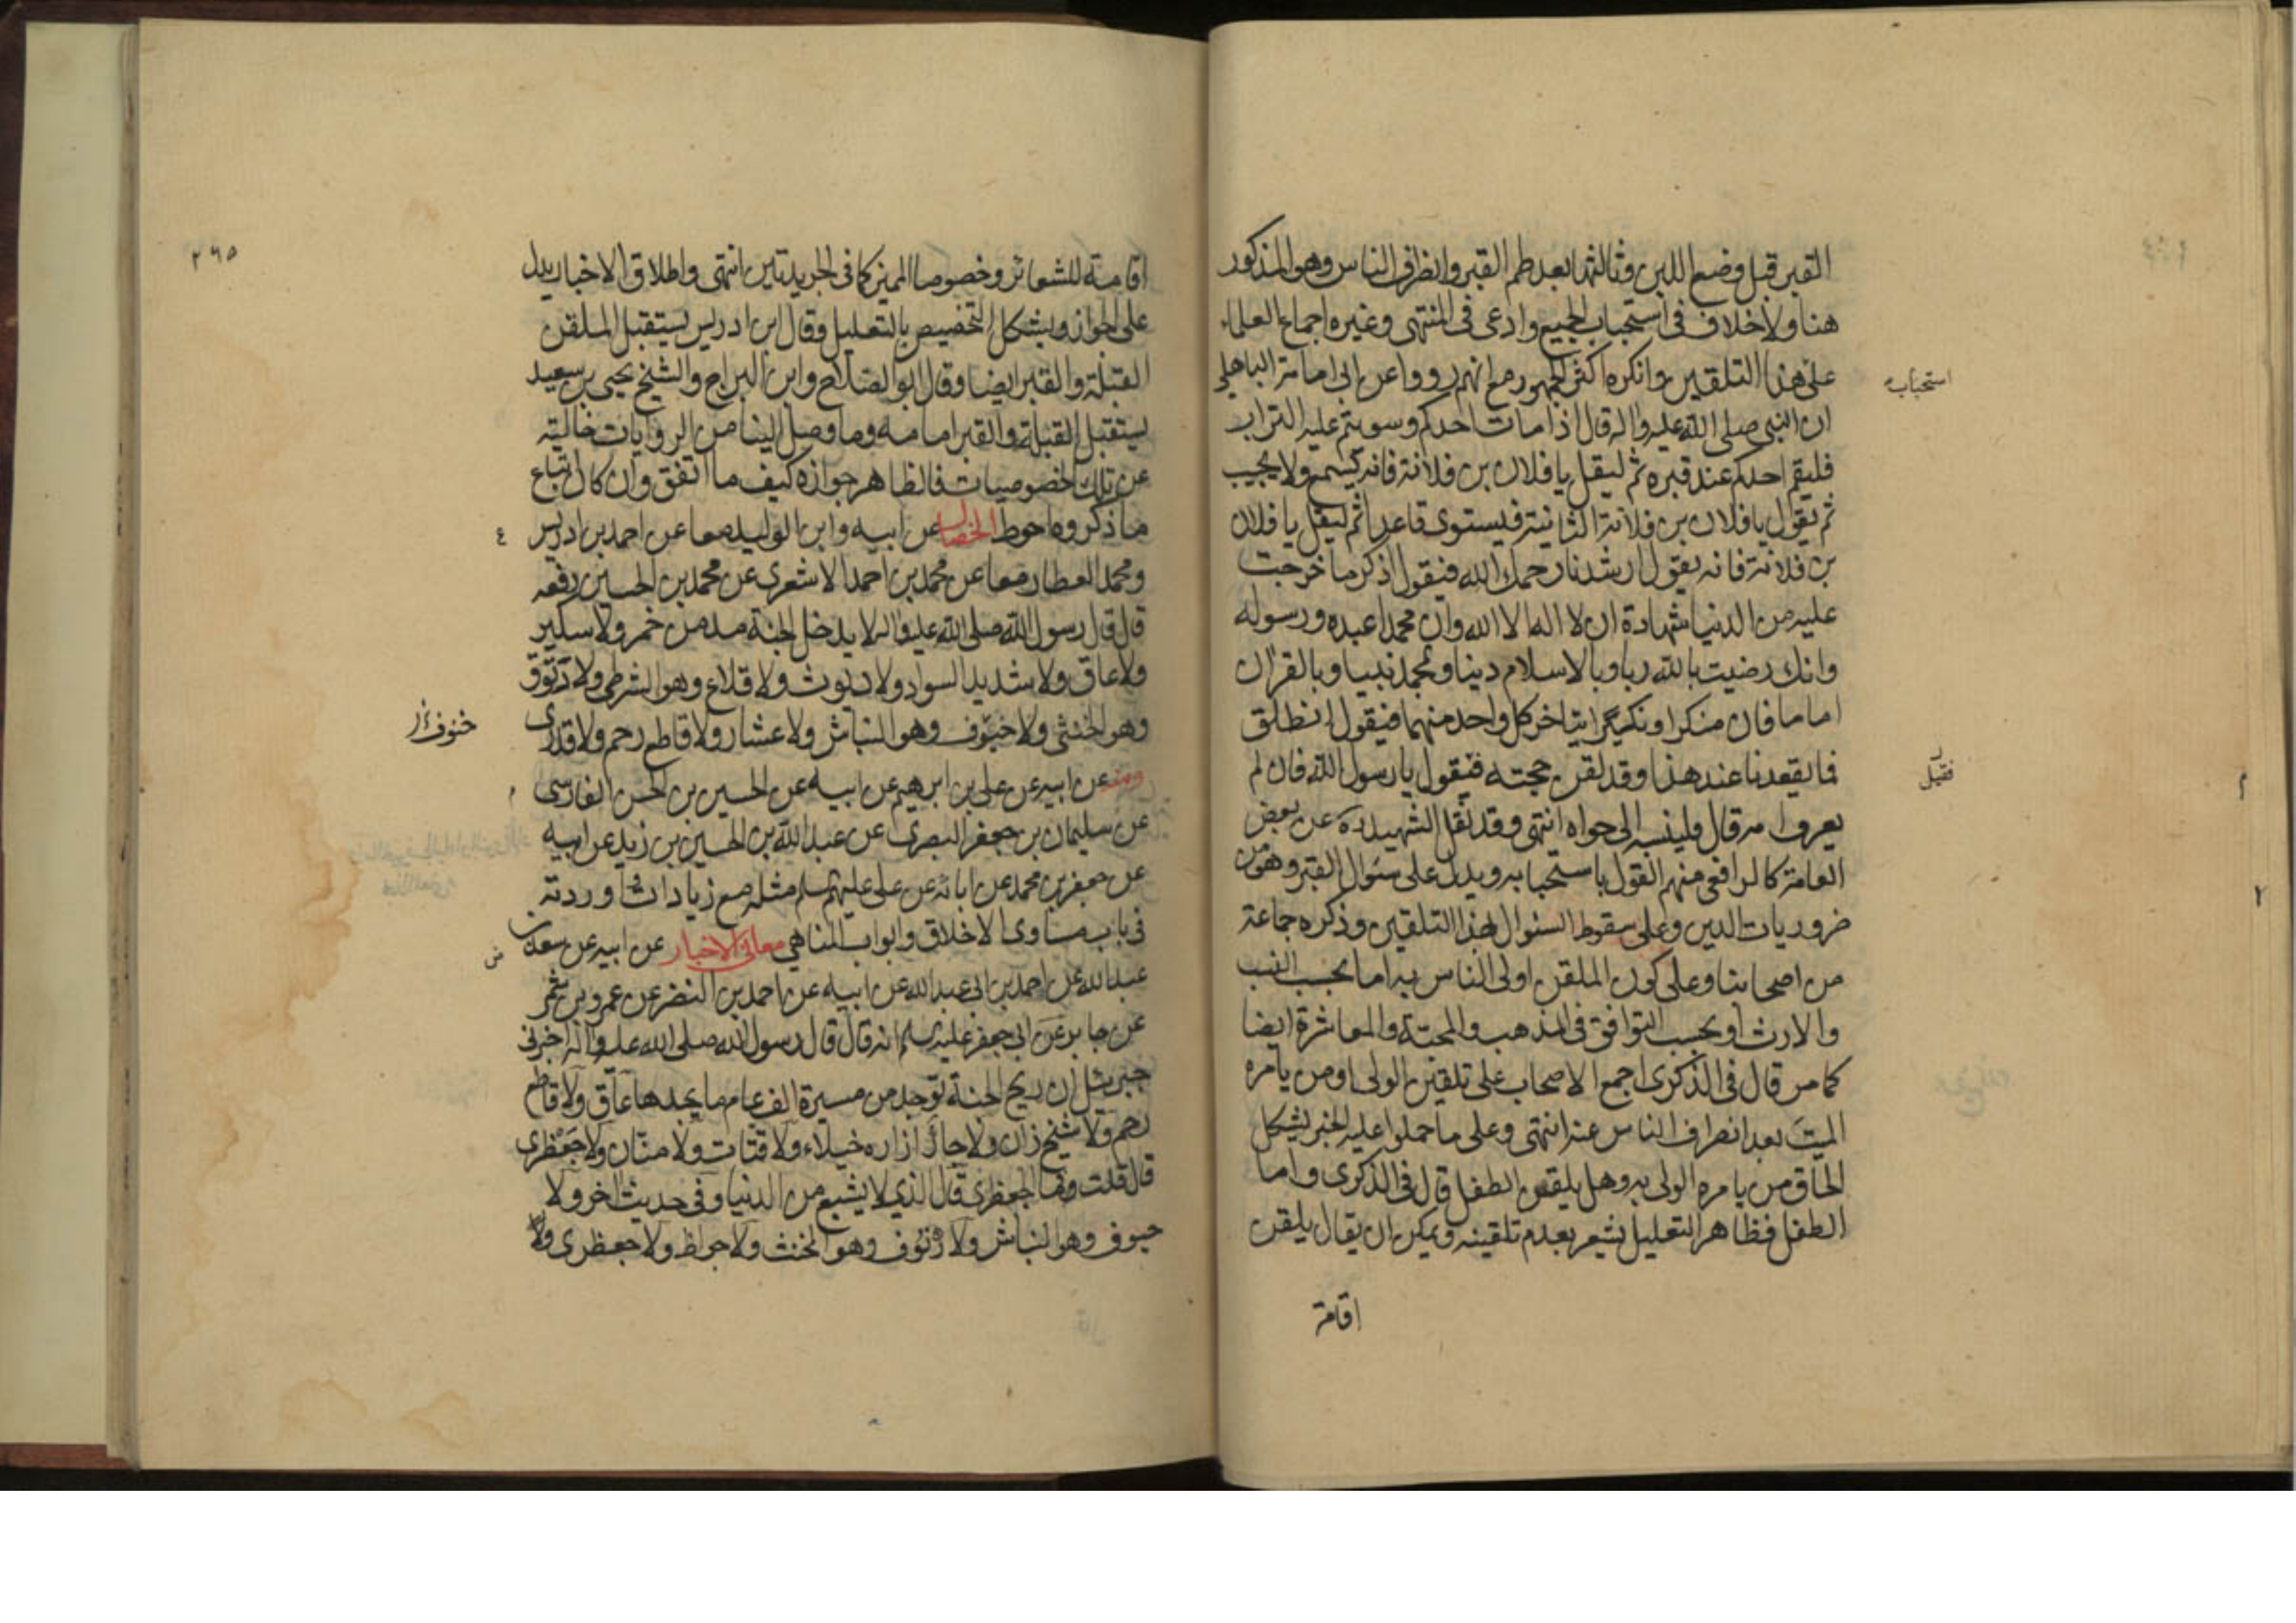 القبر قبل وضع اللبن وثالثها بعد طم القبر وانصراف الناس وهو المذكور
هنا ولا خلاف فى استحباب الجميع وادعى فى المنتهى وغيره اجماع العلماء
على هذا التلقين وانكره اكثر الجمهور مع انهم رووا عن ابى امامة الباهلى
استحباب
ان النبى صلى الله عليه واله قال اذا مات احدكم وسويتم عليه التراب
فليقم احدكم عند قبره ثم ليقل يا فلان بن فلانة فانه يسمع ولا يجيب
ثم يقول يا فلان بن فلانة الثانية فيستوى قاعدا ثم ليقل يا فلان
بن فلانة فانه يقول ارشدنا رحمك الله فيقول اذكر ما خرجت
عليه من الدنيا شهادة ان لا اله الا الله وان محمدا عبده ورسوله
وانك رضيت بالله ربا وبالاسلام دينا وبمحمد نبيا وبالقرآن
اماما فان منكرا ونكيرا يتاخر كل واحد منهما فيقول انطلق
فما يقعدنا عند هذا وقد لقن حجته فيقول يا رسول الله فان لم
فقيل
يعرف امه قال فلينسبه الى حواء انتهى وقد نقل الشهيد ره عن بعض
العامة كالرافعى منهم القول باستحبابه ويدل على سئوال القبر وهو من
٢
ضروريات الدين وعلى سقوط السئوال لهذا التلقين وذكره جماعة
من اصحابنا وعلى كون الملقن اولى الناس به اما بحسب النسب
والارث او بحسب التوافق فى المذهب والمحبة والمعاشرة ايضا
كما مر قال فى الذكرى اجمع الاصحاب على تلقين الولى او من يامره
الميت بعد انصراف الناس عنه انتهى وعلى ما حملوا عليه الخبر يشكل
الحاق من يامره الولى به وهل يلقن الطفل قال فى الذكرى واما
الطفل فظاهر التعليل يشعر بعدم تلقينه ويمكن ان يقال يلقن
اقامة
٢٦٥
اقامة للشعائر وخصوصا المميز كما فى الجريدتين انتهى واطلاق الاخبار يدل
على الجواز ويشكل التخصيص بالتعليل وقال ابن ادريس يستقبل الملقن
القبلة والقبر ايضا وقال ابو الصلاح وابن البراج والشيخ يحيى بن سعيد
يستقبل القبلة والقبر امامه وما وصل الينا من الروايات خالية
عن تلك الخصوصيات فالظاهر جوازه كيف ما اتفق وان كان اتباع
ما ذكروه احوط الخصال عن ابيه وابن الوليد معا عن احمد بن ادريس
٤
ومحمد العطار معا عن محمد بن احمد الاشعرى عن محمد بن الحسين رفعه
قال قال رسول الله صلى الله عليه واله لا يدخل الجنة مدمن خمر ولا سكير
ولا عاق ولا شديد السواد ولا ديوث ولا قلاع وهو الشرطى ولا زنوق
وهو الخنثى ولا خيوف وهو النباش ولا عشار ولا قاطع رحم ولا قدرى
خنوف
ومنه عن ابيه عن على بن ابرهيم عن ابيه عن الحسين بن الحسن الفارسى
عن سليمان بن جعفر البصرى عن عبد الله بن الحسين بن زيد عن ابيه
عن جعفر بن محمد عن ابائه عن على عليهم السلم مثله مع زيادات اوردته
فى باب مساوى الاخلاق وابواب المناهى معانى الاخبار عن ابيه عن سعد بن
عبد الله عن احمد بن ابى عبد الله عن ابيه عن احمد بن النضر عن عمرو بن شمر
عن جابر عن ابى جعفر عليه السلم انه قال قال رسول الله صلى الله عليه واله اخبرنى
جبرئيل ان ريح الجنة توجد من مسيرة الف عام ما يجدها عاق ولا قاطع
رحم ولا شيخ زان ولا جار ازاره خيلاء ولا قتات ولا منان ولا جعظرى
قال قلت وما الجعظرى قال الذى لا يشبع من الدنيا وفى حديث آخر ولا
حيوف وهو النباش ولا زنوف وهو المخنث ولا جواظ ولا جعظرى ولا